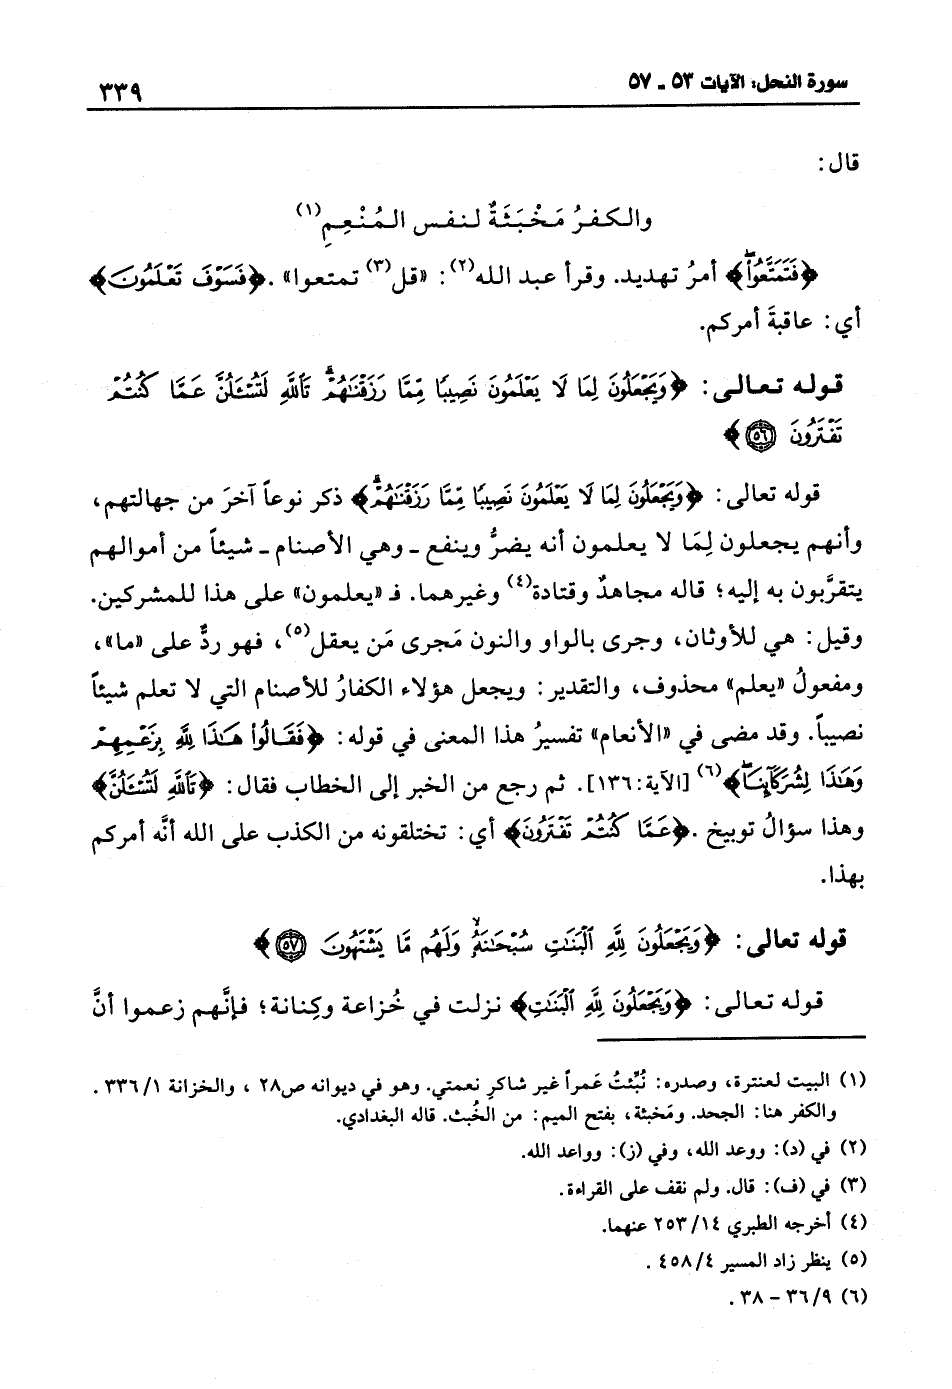 سورة النحل: الآيات ٥٣ ـ ٥٧
٣٣٩
قال:
والكفرُ مَخْبَثَةٌ لنفس المُنْعِمِ(١)
﴿فَتَمَتَّعُواْ﴾ أمرُ تهديد. وقرأ عبد الله(٢): «قل(٣) تمتعوا». ﴿فَسَوْفَ تَعْلَمُونَ﴾
أي: عاقبةَ أمركم.
قوله تعالى: ﴿وَيَجْعَلُونَ لِمَا لَا يَعْلَمُونَ نَصِيبًا مِّمَّا رَزَقْنَٰهُمْ تَٱللَّهِ لَتُسْـَٔلُنَّ عَمَّا كُنتُمْ
تَفْتَرُونَ ٥٦﴾
قوله تعالى: ﴿وَيَجْعَلُونَ لِمَا لَا يَعْلَمُونَ نَصِيبًا مِّمَّا رَزَقْنَٰهُمْ﴾ ذكر نوعاً آخرَ من جهالتهم،
وأنهم يجعلون لِمَا لا يعلمون أنه يضرُّ وينفع ـ وهي الأصنام ـ شيئاً من أموالهم
يتقرَّبون به إليه؛ قاله مجاهدٌ وقتادة(٤) وغيرهما. فـ «يعلمون» على هذا للمشركين.
وقيل: هي للأوثان، وجرى بالواو والنون مَجرى مَن يعقل(٥)، فهو ردٌّ على «ما»،
ومفعولُ «يعلم» محذوف، والتقدير: ويجعل هؤلاء الكفارُ للأصنام التي لا تعلم شيئاً
نصيباً. وقد مضى في «الأنعام» تفسيرُ هذا المعنى في قوله: ﴿فَقَالُواْ هَٰذَا لِلَّهِ بِزَعْمِهِمْ
وَهَٰذَا لِشُرَكَآئِنَا﴾(٦) [الآية:١٣٦]. ثم رجع من الخبر إلى الخطاب فقال: ﴿تَٱللَّهِ لَتُسْـَٔلُنَّ﴾
وهذا سؤالُ توبيخ. ﴿عَمَّا كُنتُمْ تَفْتَرُونَ﴾ أي: تختلقونه من الكذب على الله أنَّه أمركم
بهذا.
قوله تعالى: ﴿وَيَجْعَلُونَ لِلَّهِ ٱلْبَنَٰتِ سُبْحَٰنَهُۥ وَلَهُم مَّا يَشْتَهُونَ ٥٧﴾
قوله تعالى: ﴿وَيَجْعَلُونَ لِلَّهِ ٱلْبَنَٰتِ﴾ نزلت في خُزاعة وكِنانة؛ فإنَّهم زعموا أنَّ
(١) البيت لعنترة، وصدره: نُبِّئتُ عَمراً غير شاكرِ نعمتي. وهو في ديوانه ص٢٨ ، والخزانة ١/ ٣٣٦ .
والكفر هنا: الجحد. ومَخبثة، بفتح الميم: من الخُبث. قاله البغدادي.
(٢) في (د): ووعد الله، وفي (ز): وواعد الله.
(٣) في (ف): قال. ولم نقف على القراءة.
(٤) أخرجه الطبري ١٤/ ٢٥٣ عنهما.
(٥) ينظر زاد المسير ٤/ ٤٥٨ .
(٦) ٩/ ٣٦ - ٣٨ .